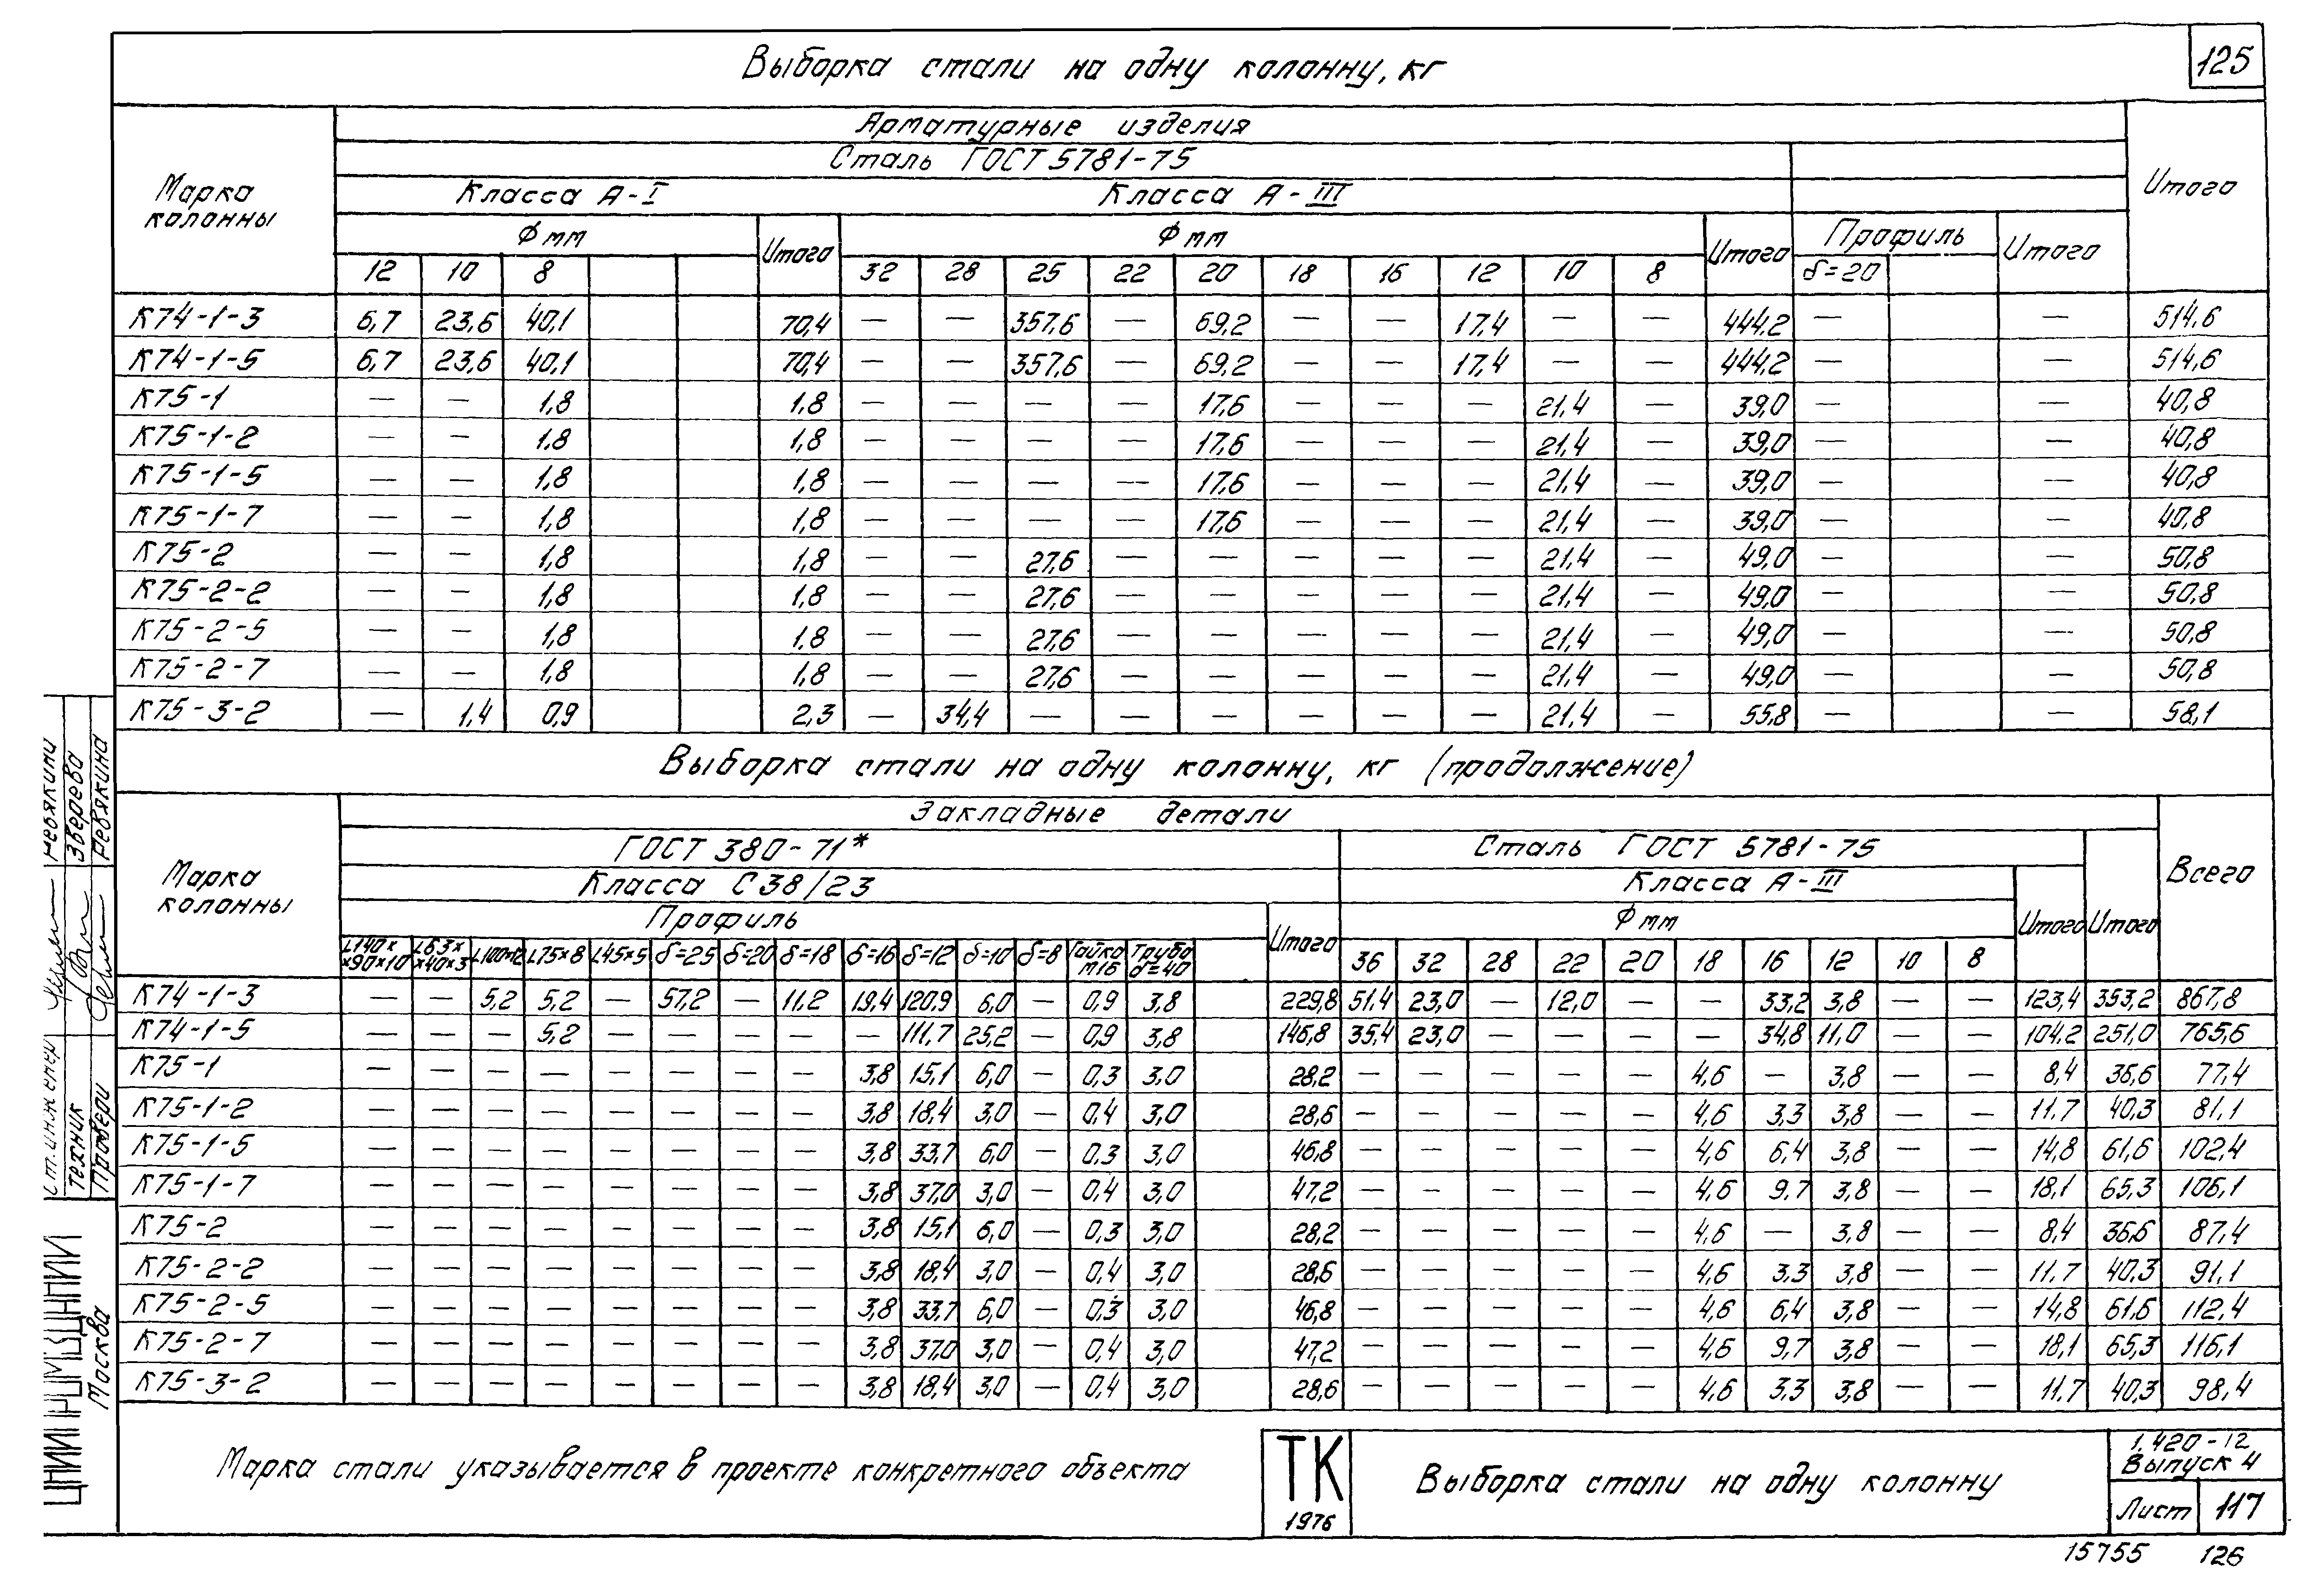 125
Выборка стали на одну колонну, кг
Марка колонны
Арматурные изделия
Итого
Сталь ГОСТ 5781-75
Класса А-I Класса А-III
Ф мм Итого Ф мм Итого Профиль Итого
12 10 8 32 28 25 22 20 18 16 12 10 8 δ=20
К74-1-3 6,7 23,6 40,1 70,4 — — 357,6 — 69,2 — — 17,4 — — 444,2 — — 514,6
К74-1-5 6,7 23,6 40,1 70,4 — — 357,6 — 69,2 — — 17,4 — — 444,2 — — 514,6
К75-1 — — 1,8 1,8 — — — — 17,6 — — — 21,4 — 39,0 — — 40,8
К75-1-2 — — 1,8 1,8 — — — — 17,6 — — — 21,4 — 39,0 — — 40,8
К75-1-5 — — 1,8 1,8 — — — — 17,6 — — — 21,4 — 39,0 — — 40,8
К75-1-7 — — 1,8 1,8 — — — — 17,6 — — — 21,4 — 39,0 — — 40,8
К75-2 — — 1,8 1,8 — — 27,6 — — — — — 21,4 — 49,0 — — 50,8
К75-2-2 — — 1,8 1,8 — — 27,6 — — — — — 21,4 — 49,0 — — 50,8
К75-2-5 — — 1,8 1,8 — — 27,6 — — — — — 21,4 — 49,0 — — 50,8
К75-2-7 — — 1,8 1,8 — — 27,6 — — — — — 21,4 — 49,0 — — 50,8
К75-3-2 — 1,4 0,9 2,3 — 34,4 — — — — — — 21,4 — 55,8 — — 58,1
Выборка стали на одну колонну, кг (продолжение)
Марка колонны
Закладные детали
Всего
ГОСТ 380-71* Сталь ГОСТ 5781-75 Итого
Класса С38/23 Класса А-III Итого
Профиль Итого Ф мм
L140××90×10 L63××40×3 L100×12 L75×8 L45×5 δ=25 δ=20 δ=18 δ=16 δ=12 δ=10 δ=8 Гайка М16 Труба d=40 36 32 28 22 20 18 16 12 10 8
К74-1-3 — — 5,2 5,2 — 57,2 — 11,2 19,4 120,9 6,0 — 0,9 3,8 229,8 51,4 23,0 — 12,0 — — 33,2 3,8 — — 123,4 353,2 867,8
К74-1-5 — — — 5,2 — — — — — 111,7 25,2 — 0,9 3,8 146,8 35,4 23,0 — — — — 34,8 11,0 — — 104,2 251,0 765,6
К75-1 — — — — — — — — 3,8 15,1 6,0 — 0,3 3,0 28,2 — — — — — 4,6 — 3,8 — — 8,4 36,6 77,4
К75-1-2 — — — — — — — — 3,8 18,4 3,0 — 0,4 3,0 28,6 — — — — — 4,6 3,3 3,8 — — 11,7 40,3 81,1
К75-1-5 — — — — — — — — 3,8 33,7 6,0 — 0,3 3,0 46,8 — — — — — 4,6 6,4 3,8 — — 14,8 61,6 102,4
К75-1-7 — — — — — — — — 3,8 37,0 3,0 — 0,4 3,0 47,2 — — — — — 4,6 9,7 3,8 — — 18,1 65,3 106,1
К75-2 — — — — — — — — 3,8 15,1 6,0 — 0,3 3,0 28,2 — — — — — 4,6 — 3,8 — — 8,4 36,6 87,4
К75-2-2 — — — — — — — — 3,8 18,4 3,0 — 0,4 3,0 28,6 — — — — — 4,6 3,3 3,8 — — 11,7 40,3 91,1
К75-2-5 — — — — — — — — 3,8 33,7 6,0 — 0,3 3,0 46,8 — — — — — 4,6 6,4 3,8 — — 14,8 61,6 112,4
К75-2-7 — — — — — — — — 3,8 37,0 3,0 — 0,4 3,0 47,2 — — — — — 4,6 9,7 3,8 — — 18,1 65,3 116,1
К75-3-2 — — — — — — — — 3,8 18,4 3,0 — 0,4 3,0 28,6 — — — — — 4,6 3,3 3,8 — — 11,7 40,3 98,4
Марка стали указывается в проекте конкретного объекта
ТК
1976
Выборка стали на одну колонну
1.420-12
Выпуск 4
Лист 117
15755 126
ст. инженер
техник Зверева
Провери Ревякина
ЦНИИПРОМЗДАНИЙ
Москва